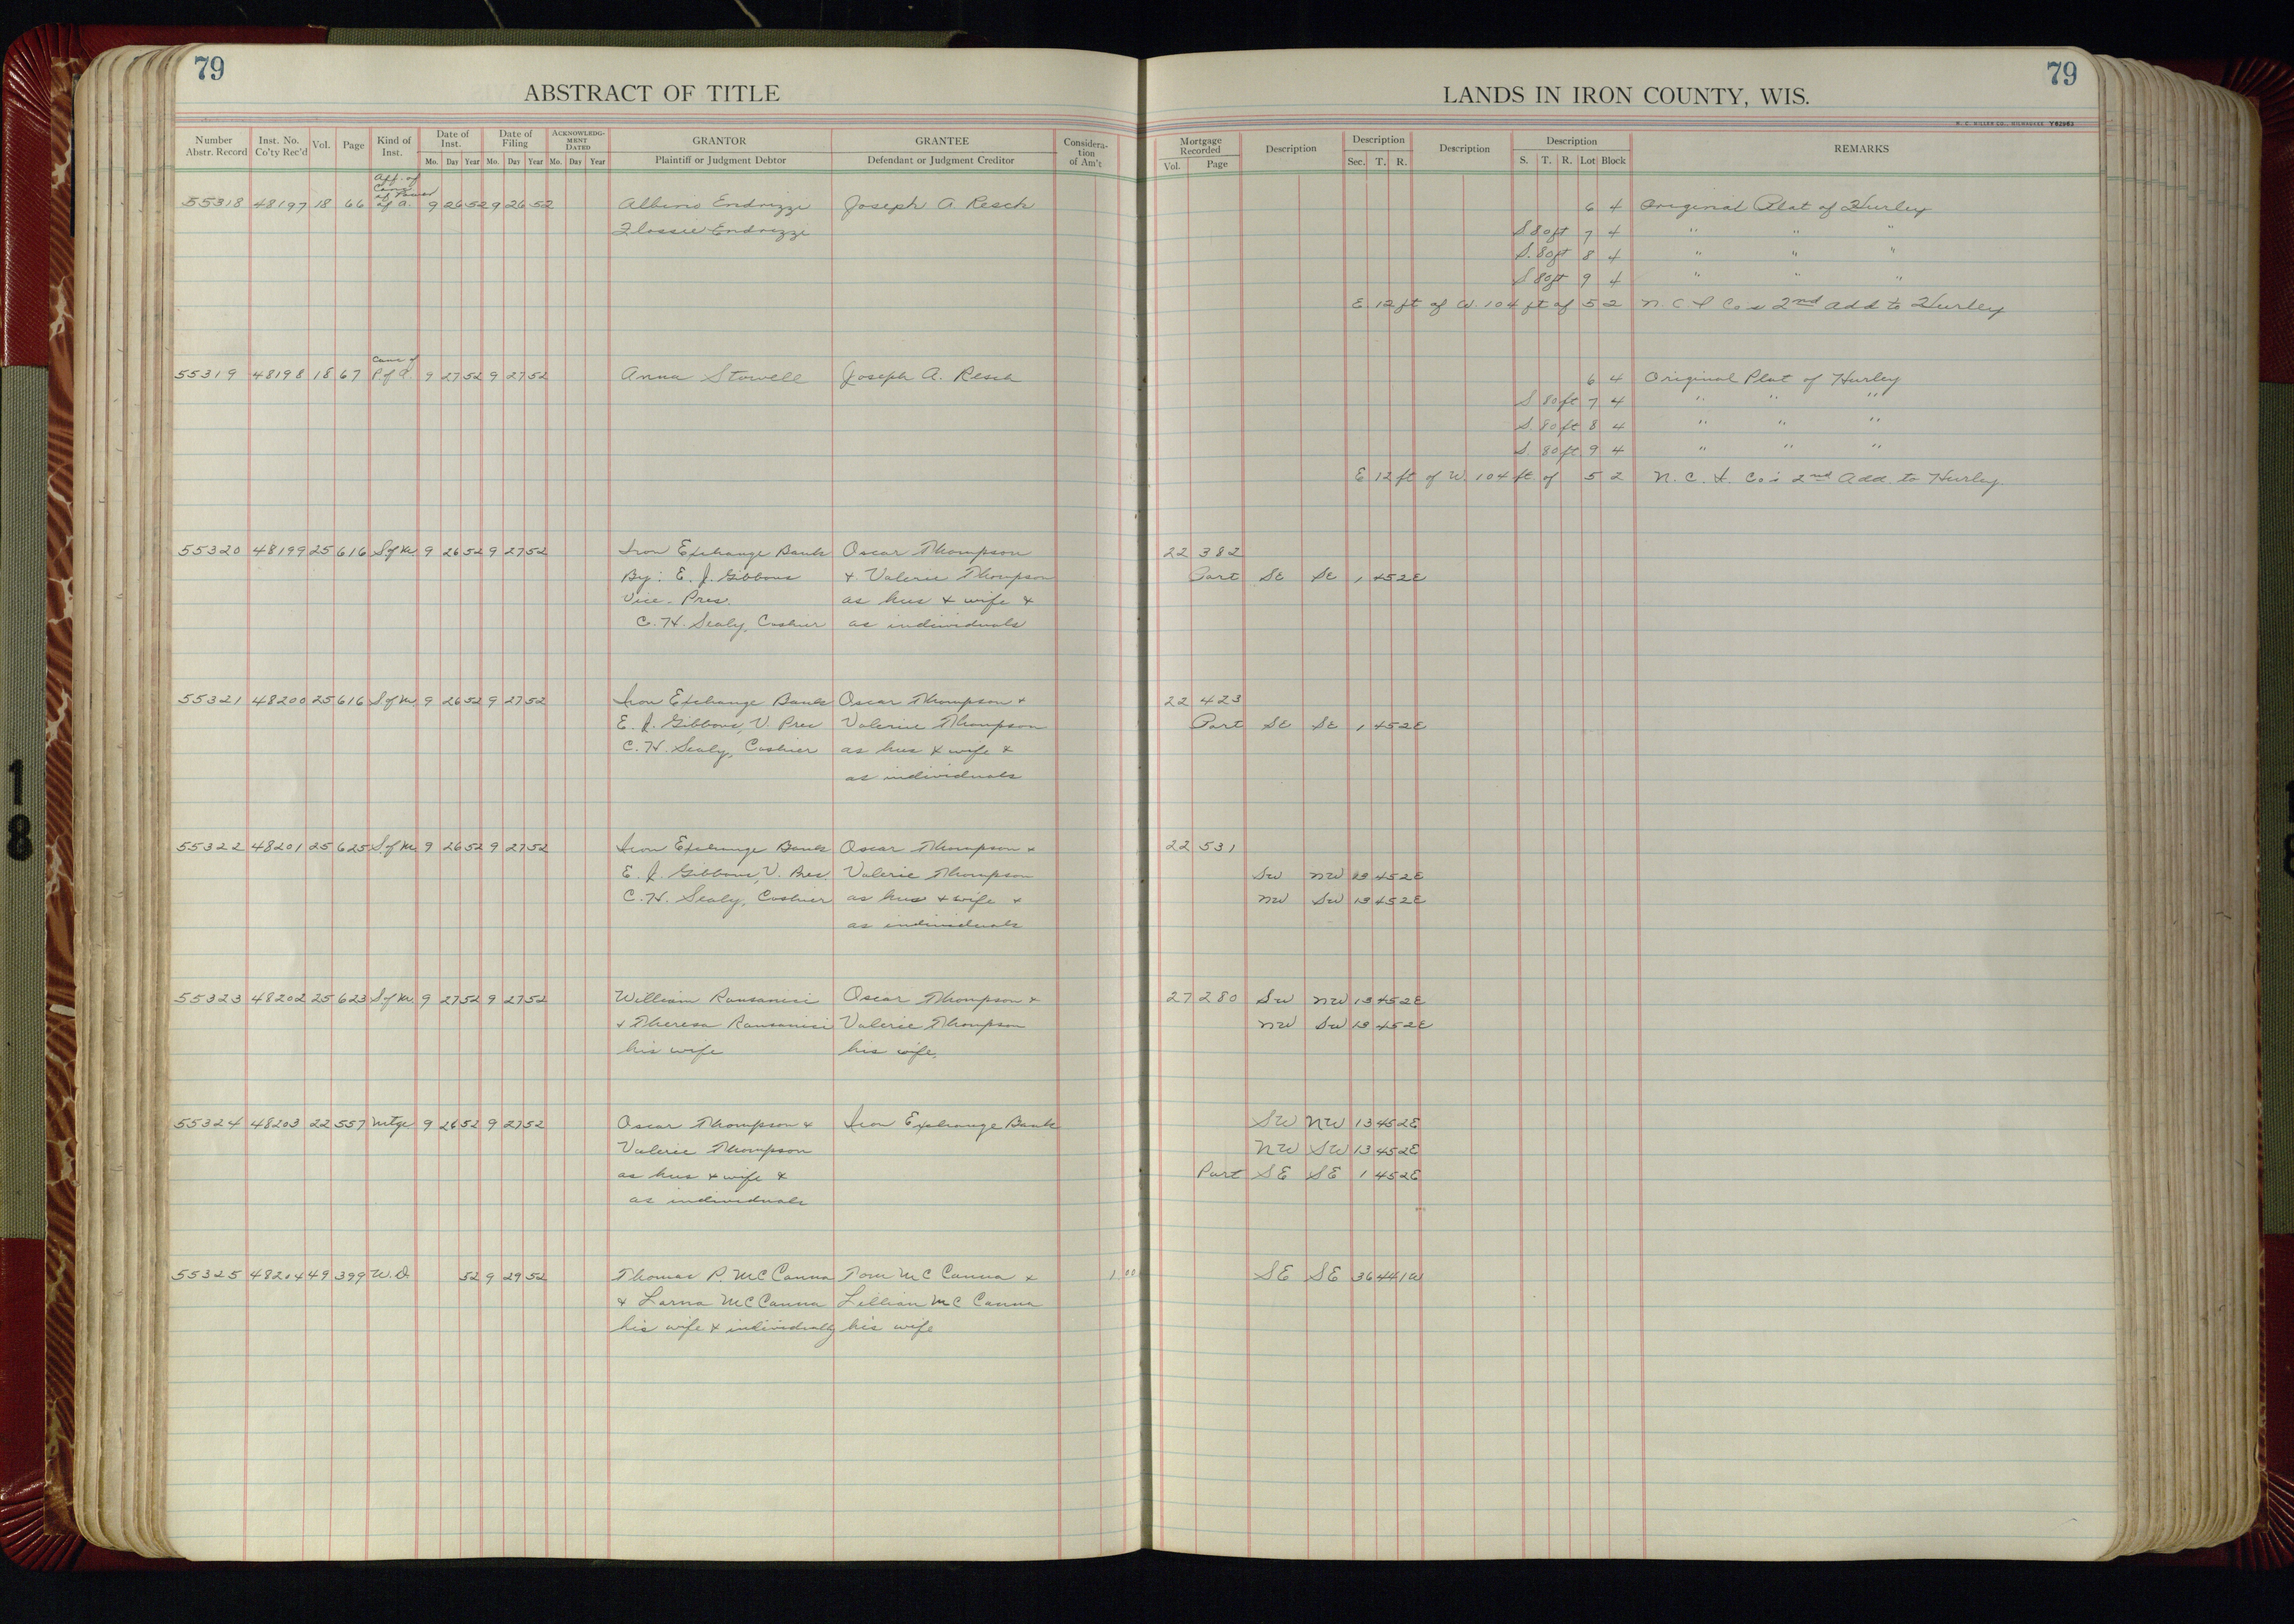 79
ABSTRACT OF TITLE
79
LANDS IN IRON COUNTY, WIS.
H. C. MILLER CO., MILWAUKEE Y62963
Number Abstr. Record Inst. No. Co'ty Rec'd Vol. Page Kind of Inst. Date of Inst. Mo. Day Year Date of Filing Mo. Day Year ACKNOWLEDGMENT DATED Mo. Day Year GRANTOR Plaintiff or Judgment Debtor GRANTEE Defendant or Judgment Creditor Consideration of Am't Mortgage Recorded Vol. Page Description Description Sec. T. R. Description Description S. T. R. Lot Block REMARKS
Aff. of
Canc.
of Power
55318 48197 18 66 of A. 9 26 52 9 26 52 Albino Endrizzi Joseph A Resch 6 4 Original Plat of Hurley
Flossie Endrizzi S 80ft 7 4 " " "
S. 80ft 8 4 " " "
S 80ft 9 4 " " "
E. 12 ft of W. 104 ft of 5 2 N. C. I Co's 2nd Add to Hurley
Canc of
55319 48198 18 67 P. of A. 9 27 52 9 27 52 Anna Stowell Joseph A. Resch 6 4 Original Plat of Hurley
S 80ft 7 4 " " "
S. 80ft 8 4 " " "
S. 80ft 9 4 " " "
E 12 ft of W. 104 ft. of 5 2 N. C. I. Co's 2nd Add. to Hurley
55320 48199 25 616 S of M 9 26 52 9 27 52 Iron Exchange Bank Oscar Thompson 22 382
By: E. J. Gibbons & Valerie Thompson Part SE SE 1 45 2E
Vice-Pres. as hus & wife &
C. H. Sealy, Cashier as individuals
55321 48200 25 616 S. of M 9 26 52 9 27 52 Iron Exchange Bank Oscar Thompson & 22 423
E. J. Gibbons, V. Pres Valerie Thompson Part SE SE 1 45 2E
C. H. Sealy, Cashier as hus & wife &
as individuals
55322 48201 25 625 S. of M 9 26 52 9 27 52 Iron Exchange Bank Oscar Thompson & 22 531
E. J. Gibbons, V. Pres Valerie Thompson SW NW 13 45 2E
C. H. Sealy, Cashier as hus & wife & NW SW 13 45 2E
as individuals
55323 48202 25 623 S of M 9 27 52 9 27 52 William Oscar Thompson & 27 280 SW NW 13 45 2E
& Theresa Valerie Thompson NW SW 13 45 2E
his wife his wife.
55324 48203 22 557 Mtge 9 26 52 9 27 52 Oscar Thompson & Iron Exchange Bank SW NW 13 45 2E
Valerie Thompson NW SW 13 45 2E
as hus & wife & Part SE SE 1 45 2E
as individuals
55325 48204 49 399 W.D. 52 9 29 52 Thomas P. McCanna Tom McCanna & 1 00 SE SE 36 44 1W
& Larna McCanna Lillian McCanna
his wife & individually his wife
18